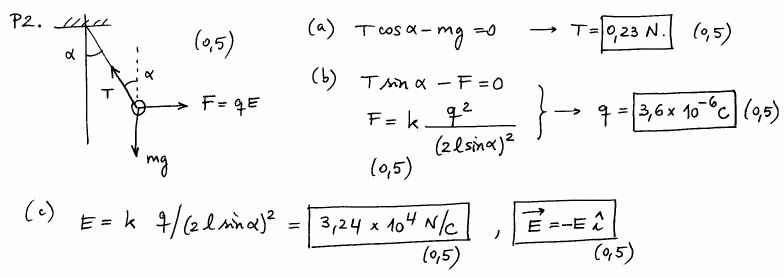 P2.
(0,5)
α
α
T
F = qE
mg
(a) T cos α - mg = 0 → T = 0,23 N. (0,5)
(b) T sin α - F = 0
F = k q²/(2l sin α)² } → q = 3,6 x 10⁻⁶ C (0,5)
(0,5)
(c) E = k q/(2l sin α)² = 3,24 x 10⁴ N/C , E⃗ = -E î
(0,5) (0,5)